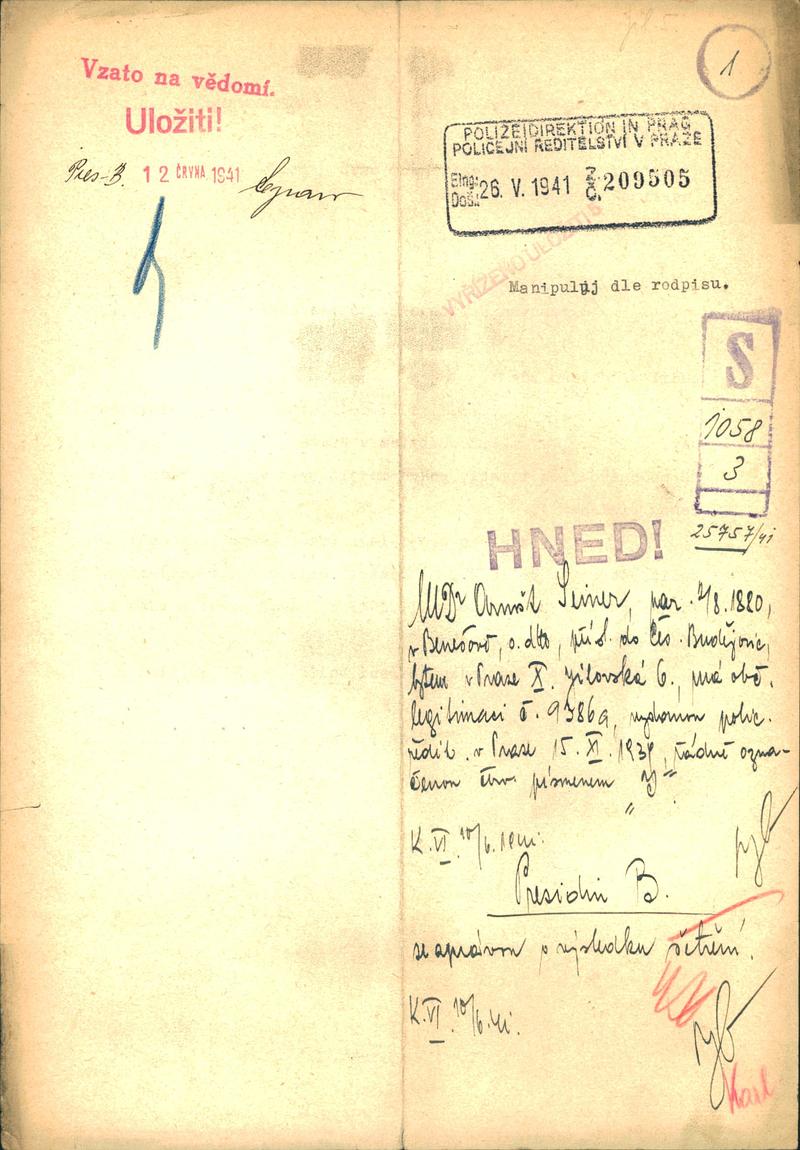 Vzato na vědomí.
Uložiti!
Pres-B. 12 ČRVNA 1941
1
POLIZEIDIREKTION IN PRAG
POLICEJNÍ ŘEDITELSTVÍ V PRAZE
Eing.: Došl. 26. V. 1941 Z. Č. 209505
VYŘÍZENO ULOŽITI
Manipuluj dle rodpisu.
S
1058
3
25757/41
HNED!
MDr Arnošt Seiner, nar. 2/8. 1880,
v Benešově, o. dtto, přísl. do Čes. Budějovic,
bytem v Praze X. Jilovská 6., má obč.
legitimaci č. 9386a, vydanou polic.
ředit. v Praze 15. XI. 1939, řádně ozna-
čenou červ. písmenem "J"
K. VI. 10/6. 1941.
Presidiu B.
se zprávou o výsledku šetření.
K. VI. 10/6. 41.